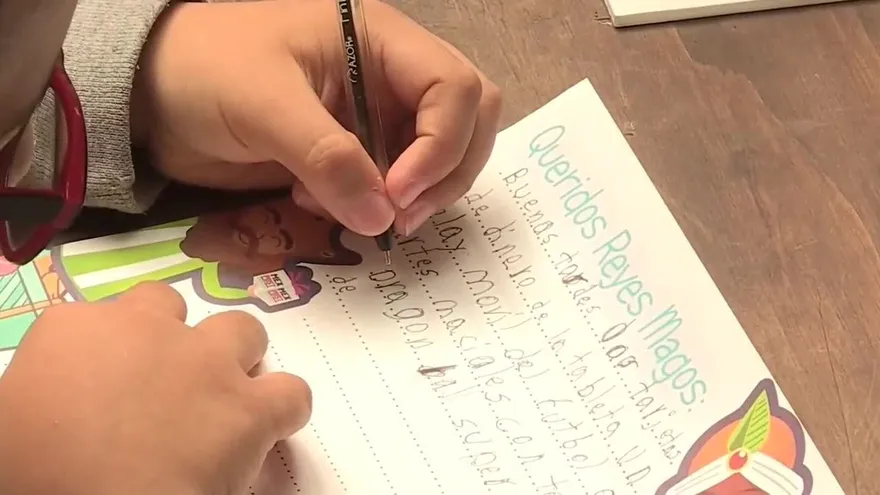 Queridos Reyes Magos:
Buenas tardes Dos tarjetas
de dinero de la tableta un
play movil del futbol
artes marsiales con
Dragon bal super
de
RAZOR
MEX MEX